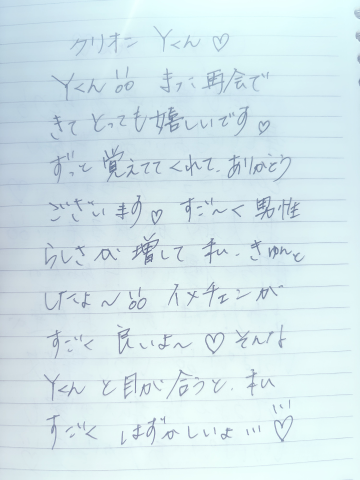 クリオン Yくん♡
Yくん!! また再会で
きてとっても嬉しいです♡
ずっと覚えててくれて、ありがとう
ございます♡ すご〜く男性
らしさが増して私、きゅんと
したよ〜!! イメチェンが
すごく良いよ〜♡そんな
Yくんと目が合うと、私
すごくはずかしいよ…♡